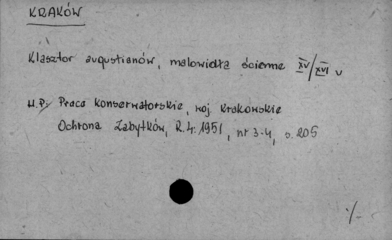 KRAKÓW
Klasztor augustianów, malowidła ścienne XV/XVI v
H.P. Prace konserwatorskie, woj. krakowskie
Ochrona Zabytków, R.4: 1951, nr 3-4, s. 205